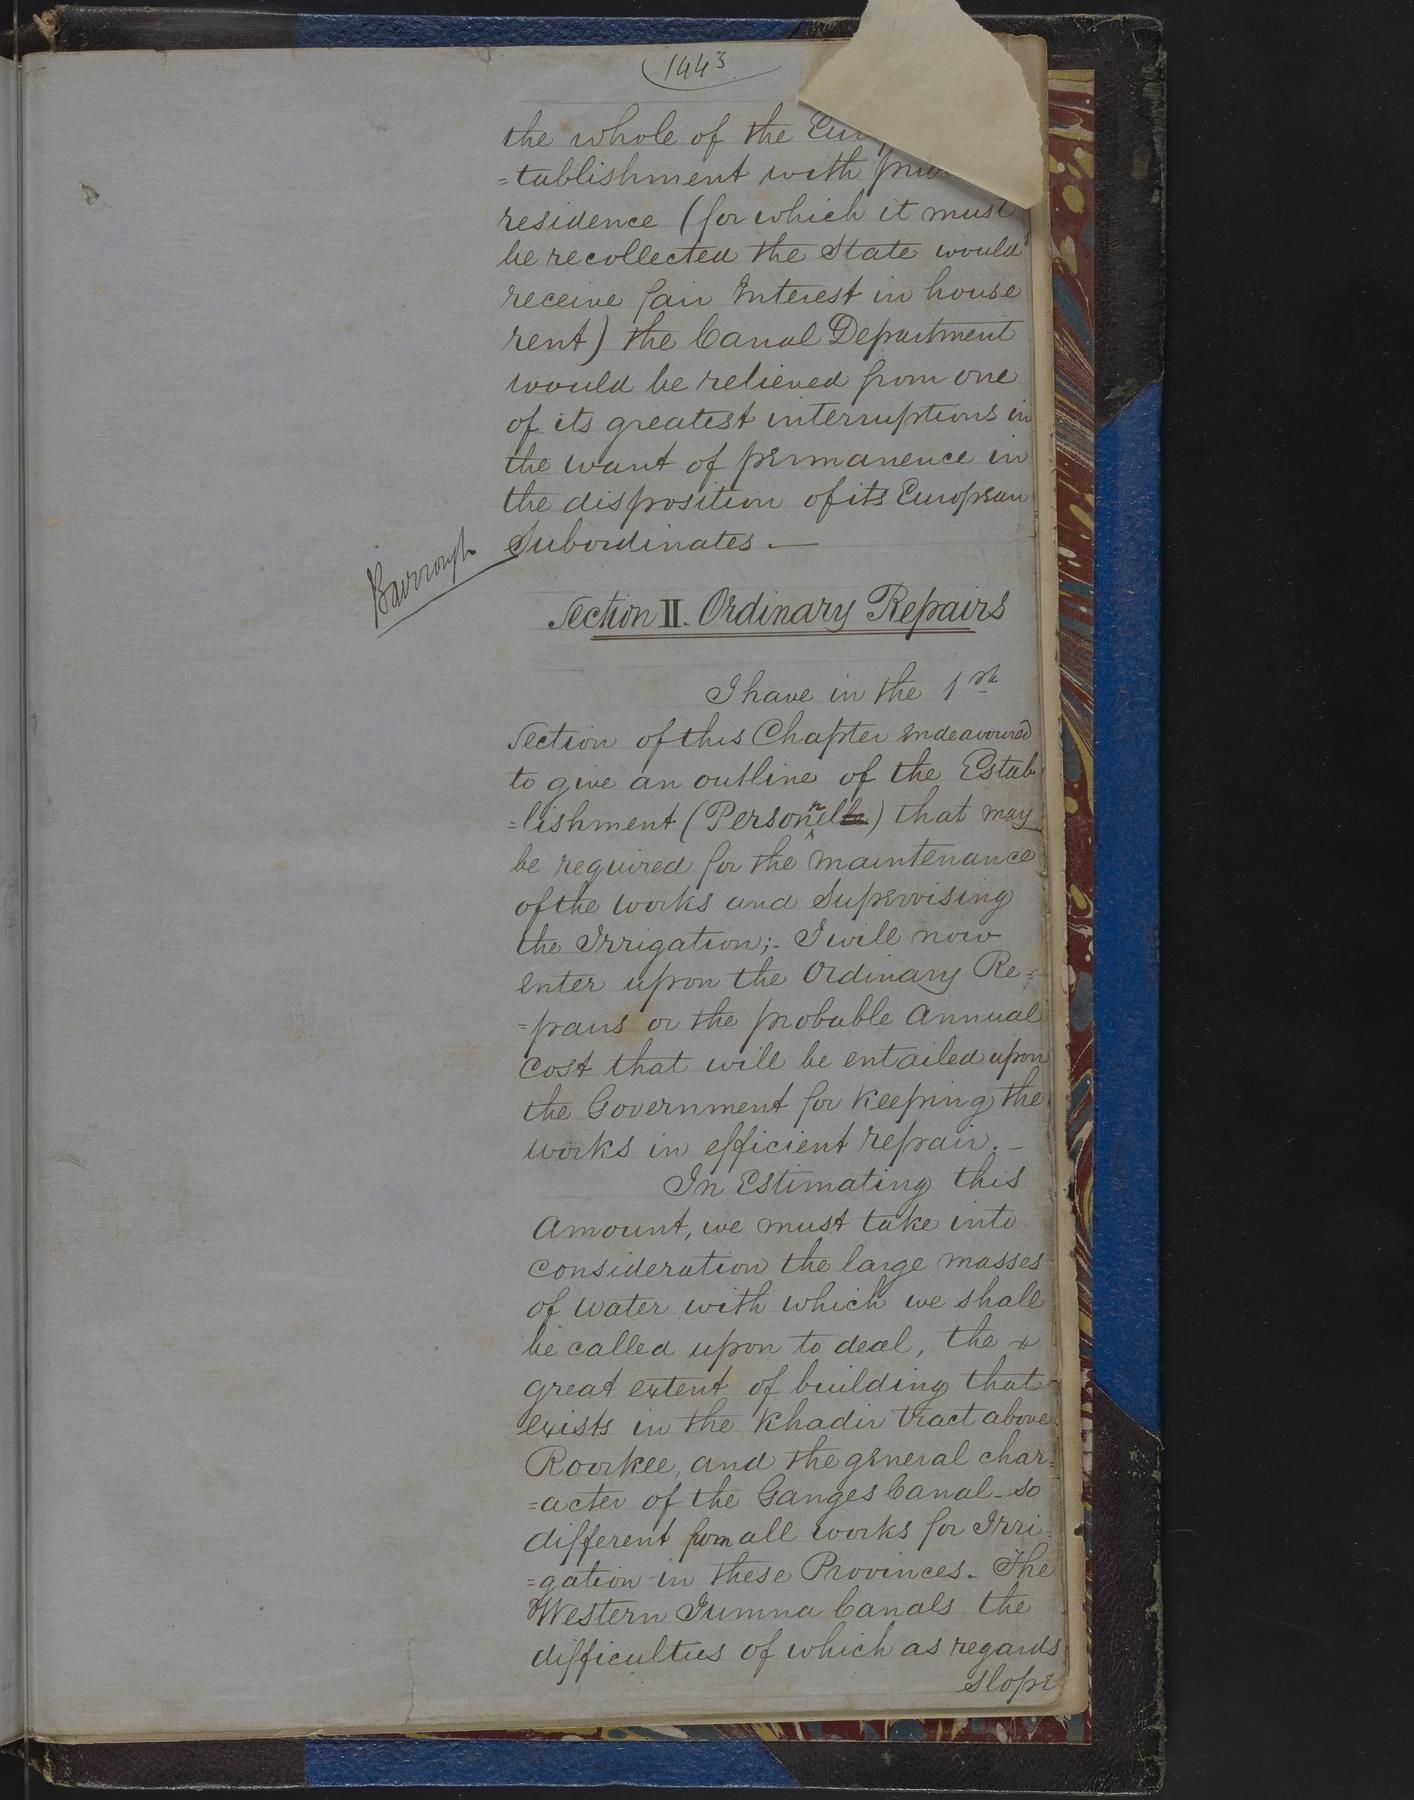 1443
the whole of the
=tablishment with
residence (for which it must
be recollected the State would
receive fair Interest in house
rent) the Canal Department
would be relieved from one
of its greatest interruptions in
the want of permanence in
the disposition of its European
Subordinates. —
Section II. Ordinary Repairs
I have in the 1st
Section of this Chapter endeavoured
to give an outline of the Estab
=lishment (Personnel) that may
be required for the maintenance
of the works and Supervising
the Irrigation;- I will now
enter upon the Ordinary Re=
=pairs or the probable annual
cost that will be entailed upon
the Government for keeping the
works in efficient repair. -
In Estimating this
Amount, we must take into
consideration the large masses
of water with which we shall
be called upon to deal, the
great extent of building that
exists in the Khadir tract above
Roorkee, and the general char=
=acter of the Ganges Canal - so
different from all works for Irri=
=gation in these Provinces. The
Western Jumna Canals the
difficulties of which as regards
slope